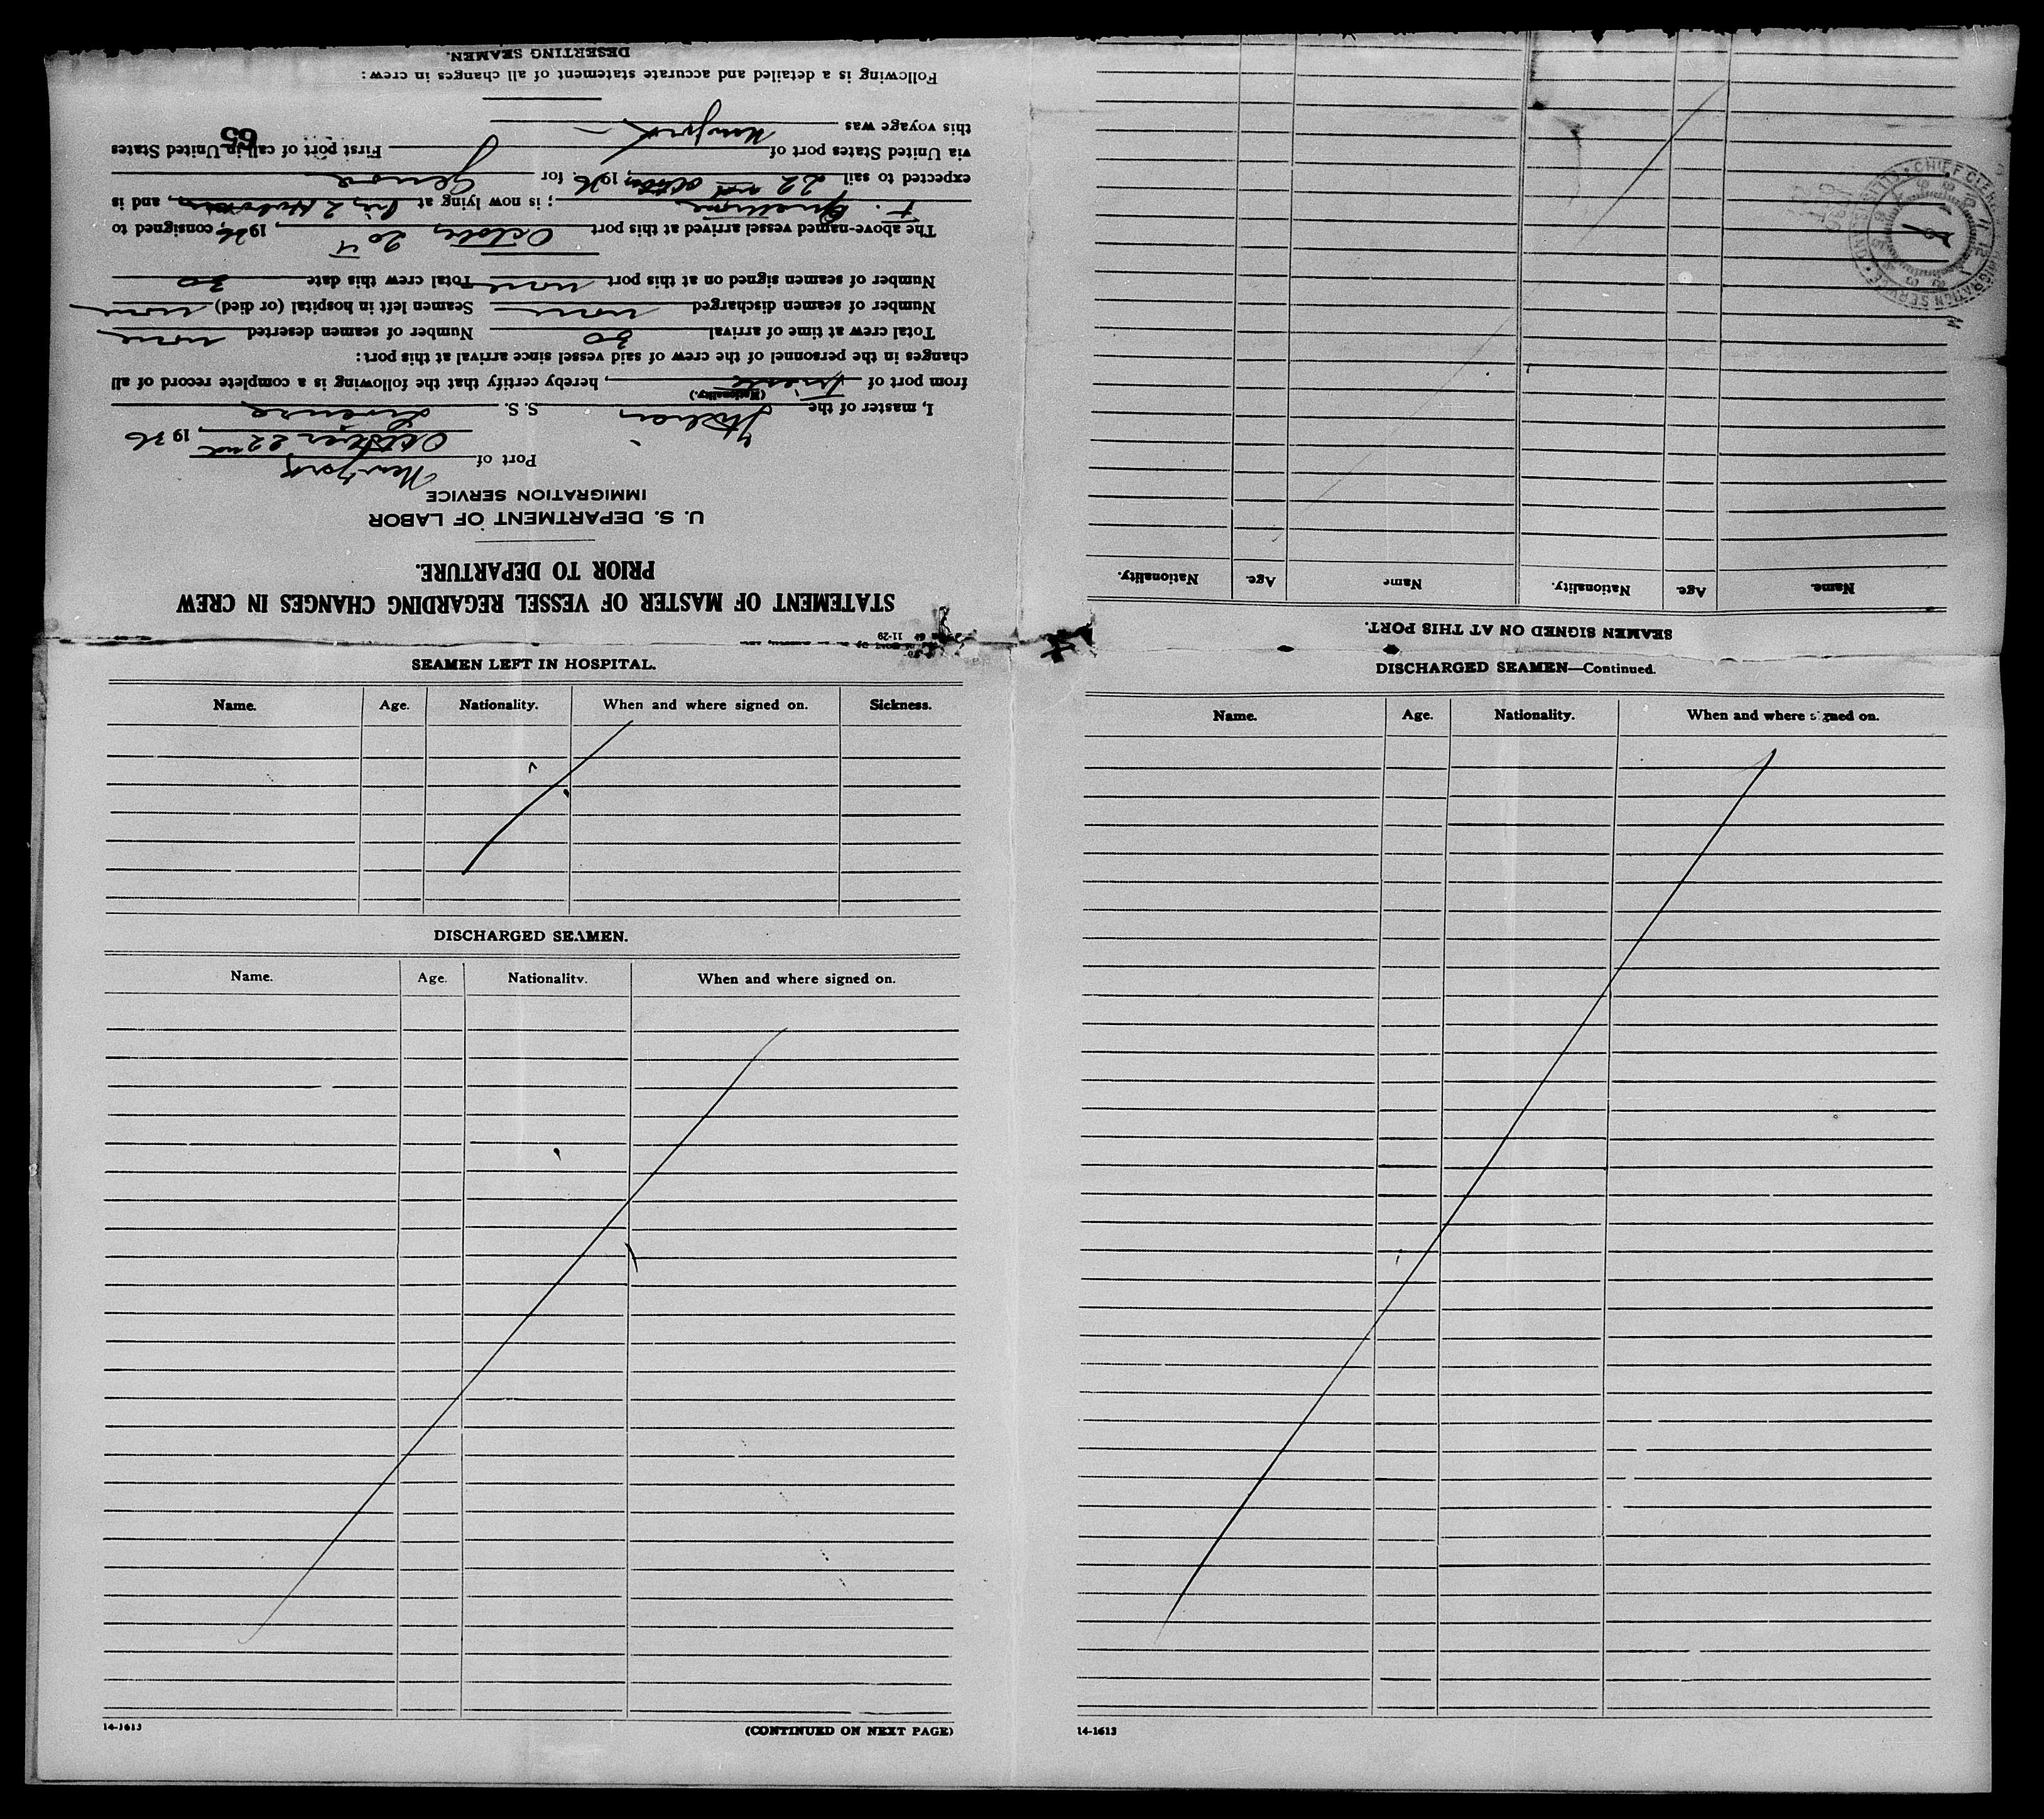 STATEMENT OF MASTER OF VESSEL REGARDING CHANGES IN CREW
PRIOR TO DEPARTURE.
U. S. DEPARTMENT OF LABOR
IMMIGRATION SERVICE
Port of New York
October 22nd, 1936
I, master of the Italian S. S. Livenza
(Nationality.)
from port of Trieste, hereby certify that the following is a complete record of all
changes in the personnel of the crew of said vessel since arrival at this port:
Total crew at time of arrival 30 Number of seamen deserted none
Number of seamen discharged none Seamen left in hospital (or died) none
Number of seamen signed on at this port none Total crew this date 30
The above-named vessel arrived at this port October 20th, 1936, consigned to
F. ; is now lying at Pier 2 Hoboken, and is
expected to sail 22nd October, 1936 for Genoa
via United States port of First port of call in United States
65
this voyage was New York
Following is a detailed and accurate statement of all changes in crew:
DESERTING SEAMEN.
SEAMEN SIGNED ON AT THIS PORT.
Name. Age. Nationality. Name Age. Nationality.
CHIEF CLERK
SEAMEN LEFT IN HOSPITAL.
Name. Age. Nationality. When and where signed on. Sickness.
DISCHARGED SEAMEN.
Name. Age. Nationality. When and where signed on.
14-1613 (CONTINUED ON NEXT PAGE)
DISCHARGED SEAMEN—Continued.
Name. Age. Nationality. When and where signed on.
14-1613